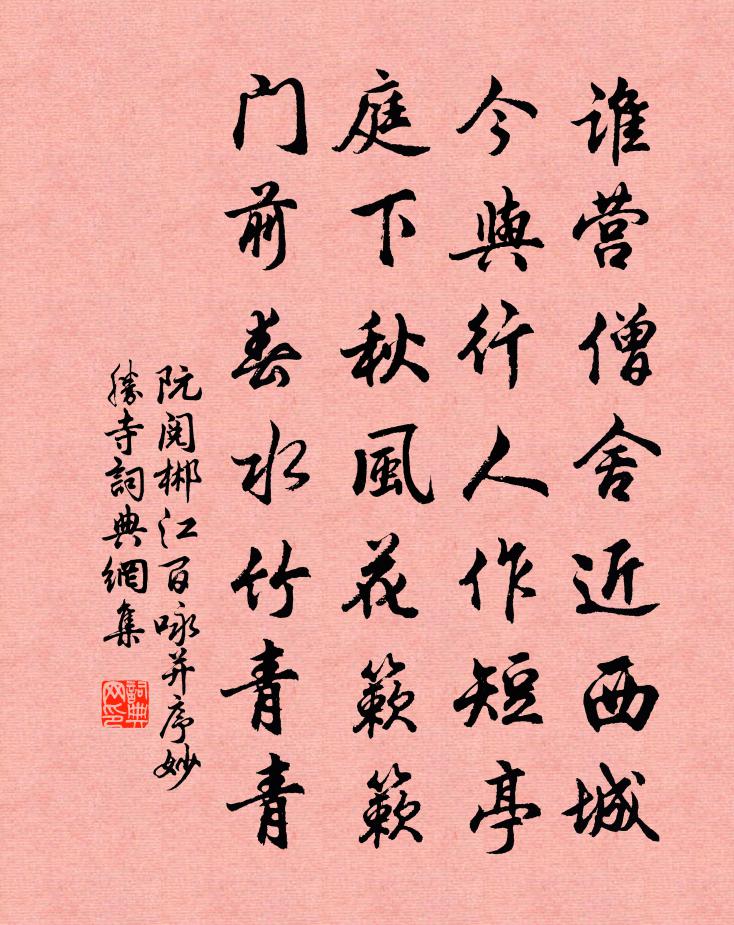 谁营僧舍近西城
今與行人作短亭
庭下秋風花簌簌
门前春水竹青青
阮阅郴江百咏并序妙
勝寺詞典網集
詞典网印